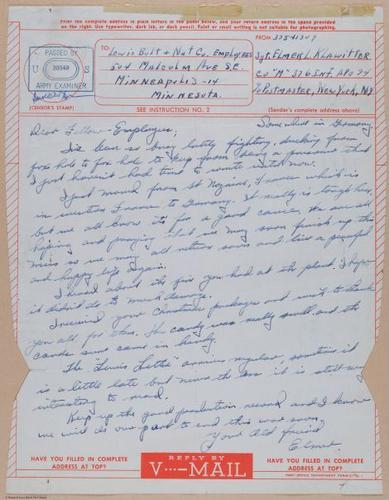 Print the complete address in plain letters in the panel below, and your return address in the space provided
on the right. Use typewriter, dark ink, or dark pencil. Faint or small writing is not suitable for photographing.
PASSED BY
U S
ARMY EXAMINER
(CENSOR'S STAMP)
TO:
Lewis Bolt & Nut Co. Employees
504 Malcolm Ave S.E.
Minneapolis-14
Minnesota.
SEE INSTRUCTION NO. 2
FROM
Sgt Elmer L. Klawitter
Co "M" 376 Inf. APO
℅ Postmaster, New York, N.Y.
(Sender's complete address above)
Somewhere in Germany
Dear Fellow-Employees,
I've been so busy lately fighting, ducking from
fox hole to fox hole to keep from being a
I just haven't had time to write until now.
I just moved from St Nazaire, France which is
in western France to Germany. It really is tough here,
but we all know it's for a good cause. We are all
hoping and praying that we may soon finish up this
mess so we may all return soon and live a peaceful
and happy life again.
I heard about the fire you had at the plant. I hope
it didn't do to much damage.
I received your Christmas packages and wish to thank
you all for this. The candy was really swell and the
candles sure came in handy.
The "Lewis Letter" arrives regular, sometimes it
is a little late but never the less it is still very
interesting to read.
Keep up the good production record and I know
we will do our part to end this war soon.
Your old friend
Elmer
HAVE YOU FILLED IN COMPLETE
ADDRESS AT TOP?
REPLY BY
V···—MAIL
HAVE YOU FILLED IN COMPLETE
ADDRESS AT TOP?